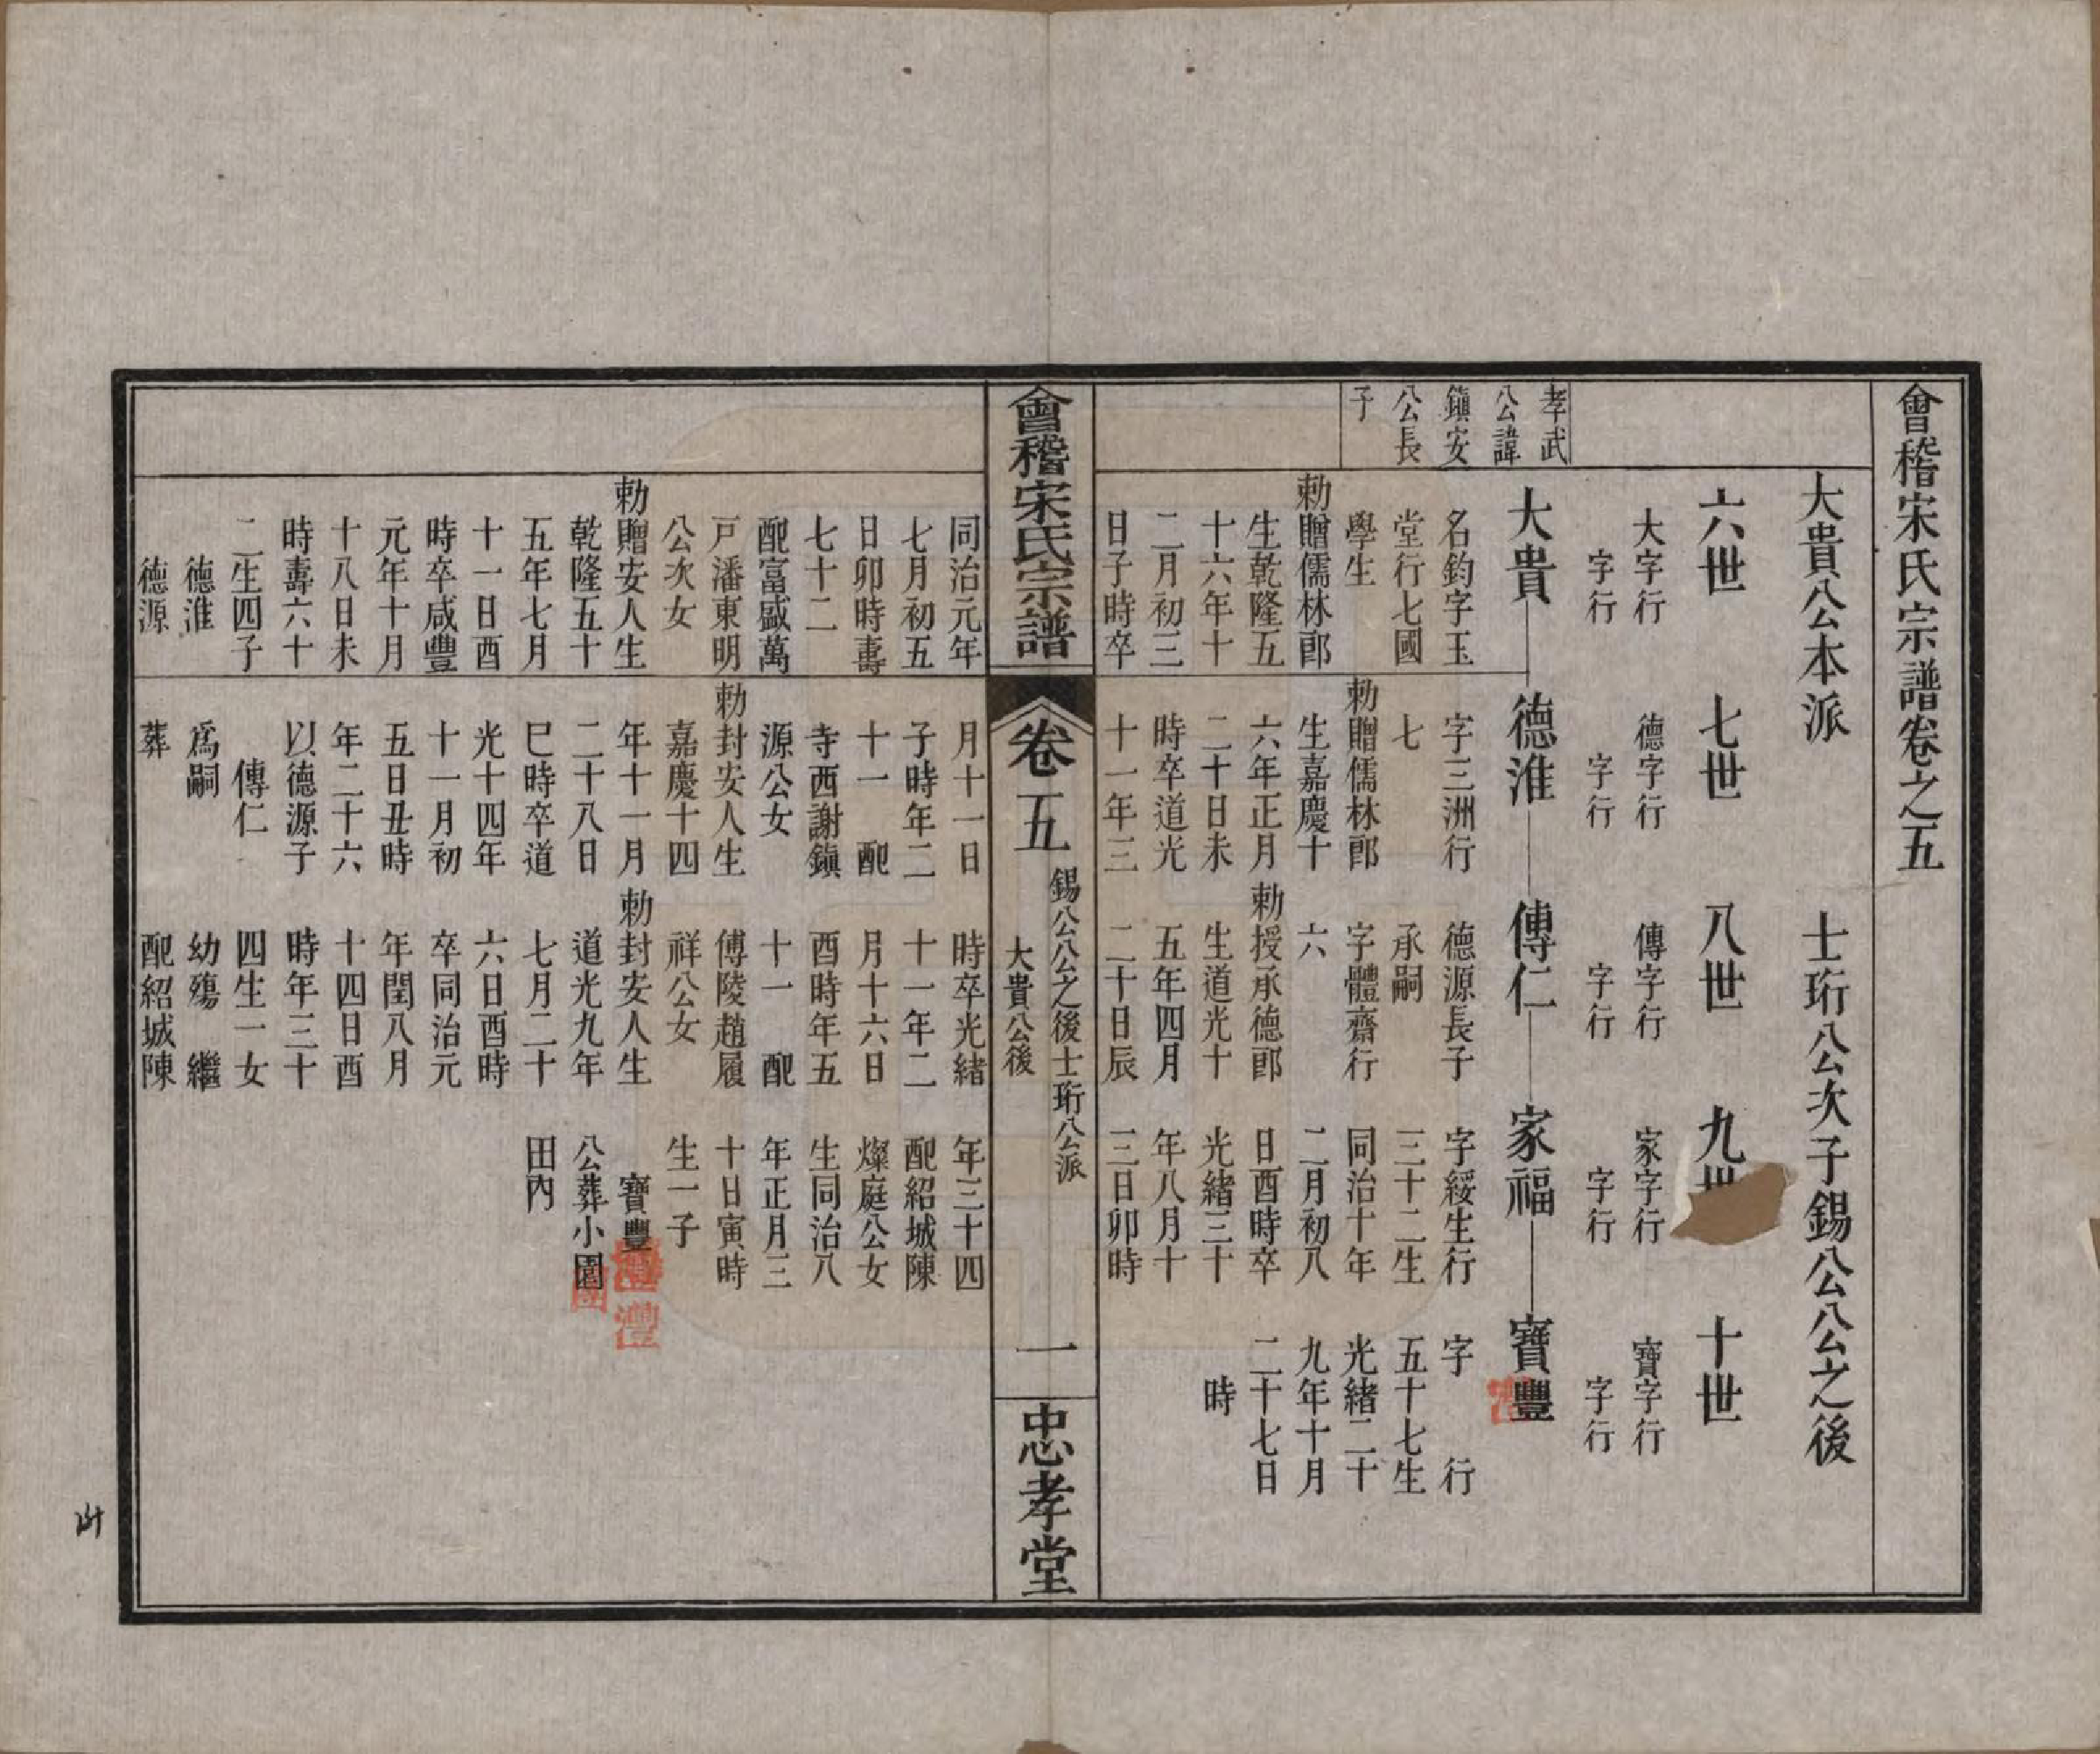 會稽宋氏宗譜卷之五
大貴公本派　士珩公次子錫公公之後
六世　七世　八世　九世　十世
大字行　德字行　傳字行　家字行　寶字行
字行　字行　字行　字行　字行
孝武
公諱
鎮安
公長
子
大貴　德淮　傳仁　家福　寶豐
名鈞字玉
堂行七國
學生
勅贈儒林郎
生乾隆五
十六年十
二月初三
日子時卒
同治元年
七月初五
日卯時壽
七十二
配富盛萬
戸潘東明
公次女
勅贈安人生
乾隆五十
五年七月
十一日酉
時卒咸豐
元年十月
十八日未
時壽六十
二生四子
德淮
德源
字三洲行
七
勅贈儒林郎
生嘉慶十
六年正月
二十日未
時卒道光
十一年三
月十一日
子時年二
十一　配
寺西謝鎮
源公女
勅封安人生
嘉慶十四
年十一月
二十八日
巳時卒道
光十四年
十一月初
五日丑時
年二十六
以德源子
傳仁
爲嗣
葬
德源長子
承嗣
字體齋行
六
勅授承德郎
生道光十
五年四月
二十日辰
時卒光緒
十一年二
月十六日
酉時年五
十一　配
傅陵趙履
祥公女
勅封安人生
道光九年
七月二十
六日酉時
卒同治元
年閏八月
十四日酉
時年三十
四生一女
幼殤　繼
配紹城陳
字綏生行
三十二生
同治十年
二月初八
日酉時卒
光緒三十
年八月十
三日卯時
年三十四
配紹城陳
燦庭公女
生同治八
年正月三
十日寅時
生一子
寶豐
公葬小園
田內
字　行
五十七生
光緒二十
九年十月
二十七日
時
會稽宋氏宗譜
卷五
錫公公之後士珩公派
大貴公後
一
忠孝堂
灃